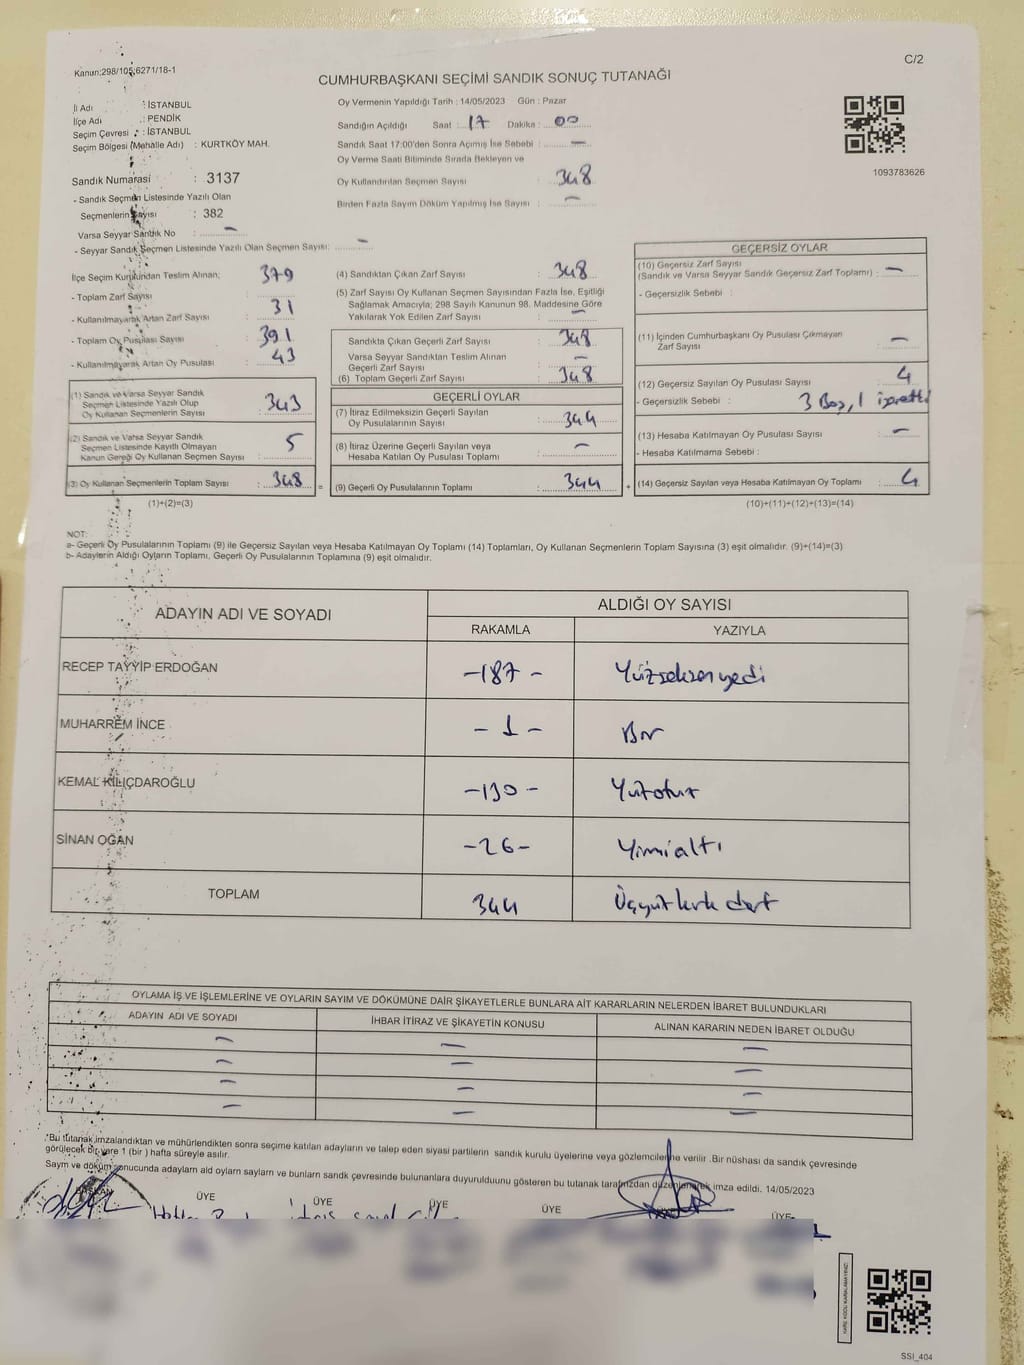 Kanun;298/105;6271/18-1
C/2
CUMHURBAŞKANI SEÇİMİ SANDIK SONUÇ TUTANAĞI
İl Adı : İSTANBUL
İlçe Adı : PENDİK
Seçim Çevresi : İSTANBUL
Seçim Bölgesi (Mahalle Adı) : KURTKÖY MAH.
Oy Vermenin Yapıldığı Tarih : 14/05/2023 Gün : Pazar
Sandığın Açıldığı Saat : 17 Dakika : 00
Sandık Saat 17:00'den Sonra Açımış İse Sebebi : —
Oy Verme Saati Bitiminde Sırada Bekleyen ve
Oy Kullandırılan Seçmen Sayısı : 348
Birden Fazla Sayım Döküm Yapılmış İse Sayısı : —
1093783626
Sandık Numarası : 3137
- Sandık Seçmen Listesinde Yazılı Olan
Seçmenlerin Sayısı : 382
Varsa Seyyar Sandık No : —
- Seyyar Sandık Seçmen Listesinde Yazılı Olan Seçmen Sayısı: —
İlçe Seçim Kurulundan Teslim Alınan; 379
- Toplam Zarf Sayısı
- Kullanılmayarak Artan Zarf Sayısı 31
- Toplam Oy Pusulası Sayısı 391
- Kullanılmayarak Artan Oy Pusulası 43
(1) Sandık ve Varsa Seyyar Sandık
Seçmen Listesinde Yazılı Olup
Oy Kullanan Seçmenlerin Sayısı : 343
(2) Sandık ve Varsa Seyyar Sandık
Seçmen Listesinde Kayıtlı Olmayan
Kanun Gereği Oy Kullanan Seçmen Sayısı 5
(3) Oy Kullanan Seçmenlerin Toplam Sayısı : 348 =
(1)+(2)=(3)
(4) Sandıktan Çıkan Zarf Sayısı : 348
(5) Zarf Sayısı Oy Kullanan Seçmen Sayısından Fazla İse, Eşitliği
Sağlamak Amacıyla; 298 Sayılı Kanunun 98. Maddesine Göre
Yakılarak Yok Edilen Zarf Sayısı : —
Sandıkta Çıkan Geçerli Zarf Sayısı : 348
Varsa Seyyar Sandıktan Teslim Alınan
Geçerli Zarf Sayısı : —
(6) Toplam Geçerli Zarf Sayısı : 348
GEÇERLİ OYLAR
(7) İtiraz Edilmeksizin Geçerli Sayılan
Oy Pusulalarının Sayısı : 344
(8) İtiraz Üzerine Geçerli Sayılan veya
Hesaba Katılan Oy Pusulası Toplamı : —
(9) Geçerli Oy Pusulalarının Toplamı : 344 +
GEÇERSİZ OYLAR
(10) Geçersiz Zarf Sayısı
(Sandık ve Varsa Seyyar Sandık Geçersiz Zarf Toplamı) : —
- Geçersizlik Sebebi :
(11) İçinden Cumhurbaşkanı Oy Pusulası Çıkmayan
Zarf Sayısı : —
(12) Geçersiz Sayılan Oy Pusulası Sayısı : 4
- Geçersizlik Sebebi : 3 Boş, 1 işaretli
(13) Hesaba Katılmayan Oy Pusulası Sayısı : —
- Hesaba Katılmama Sebebi :
(14) Geçersiz Sayılan veya Hesaba Katılmayan Oy Toplamı : 4
(10)+(11)+(12)+(13)=(14)
NOT:
a- Geçerli Oy Pusulalarının Toplamı (9) ile Geçersiz Sayılan veya Hesaba Katılmayan Oy Toplamı (14) Toplamları, Oy Kullanan Seçmenlerin Toplam Sayısına (3) eşit olmalıdır. (9)+(14)=(3)
b- Adayların Aldığı Oyların Toplamı, Geçerli Oy Pusulalarının Toplamına (9) eşit olmalıdır.
ADAYIN ADI VE SOYADI ALDIĞI OY SAYISI
RAKAMLA YAZIYLA
RECEP TAYYİP ERDOĞAN -187- Yüzseksenyedi
MUHARREM İNCE -1- Bir
KEMAL KILIÇDAROĞLU -130- Yüzotuz
SİNAN OĞAN -26- Yirmialtı
TOPLAM 344 Üçyüzkırk dört
OYLAMA İŞ VE İŞLEMLERİNE VE OYLARIN SAYIM VE DÖKÜMÜNE DAİR ŞİKAYETLERLE BUNLARA AİT KARARLARIN NELERDEN İBARET BULUNDUKLARI
ADAYIN ADI VE SOYADI İHBAR İTİRAZ VE ŞİKAYETİN KONUSU ALINAN KARARIN NEDEN İBARET OLDUĞU
— — —
— — —
— — —
— — —
*Bu tutanak imzalandıktan ve mühürlendikten sonra seçime katılan adayların ve talep eden siyasi partilerin sandık kurulu üyelerine veya gözlemcilerine verilir .Bir nüshası da sandık çevresinde
görülecek bir yere 1 (bir ) hafta süreyle asılır.
Sayım ve döküm sonucunda adayların ald oyların sayların ve bunların sandk çevresinde bulunanlara duyurulduunu gösteren bu tutanak tarafmızdan düzenlenerek imza edildi. 14/05/2023
BAŞKAN ÜYE ÜYE ÜYE ÜYE ÜYE ÜYE
SSI_404